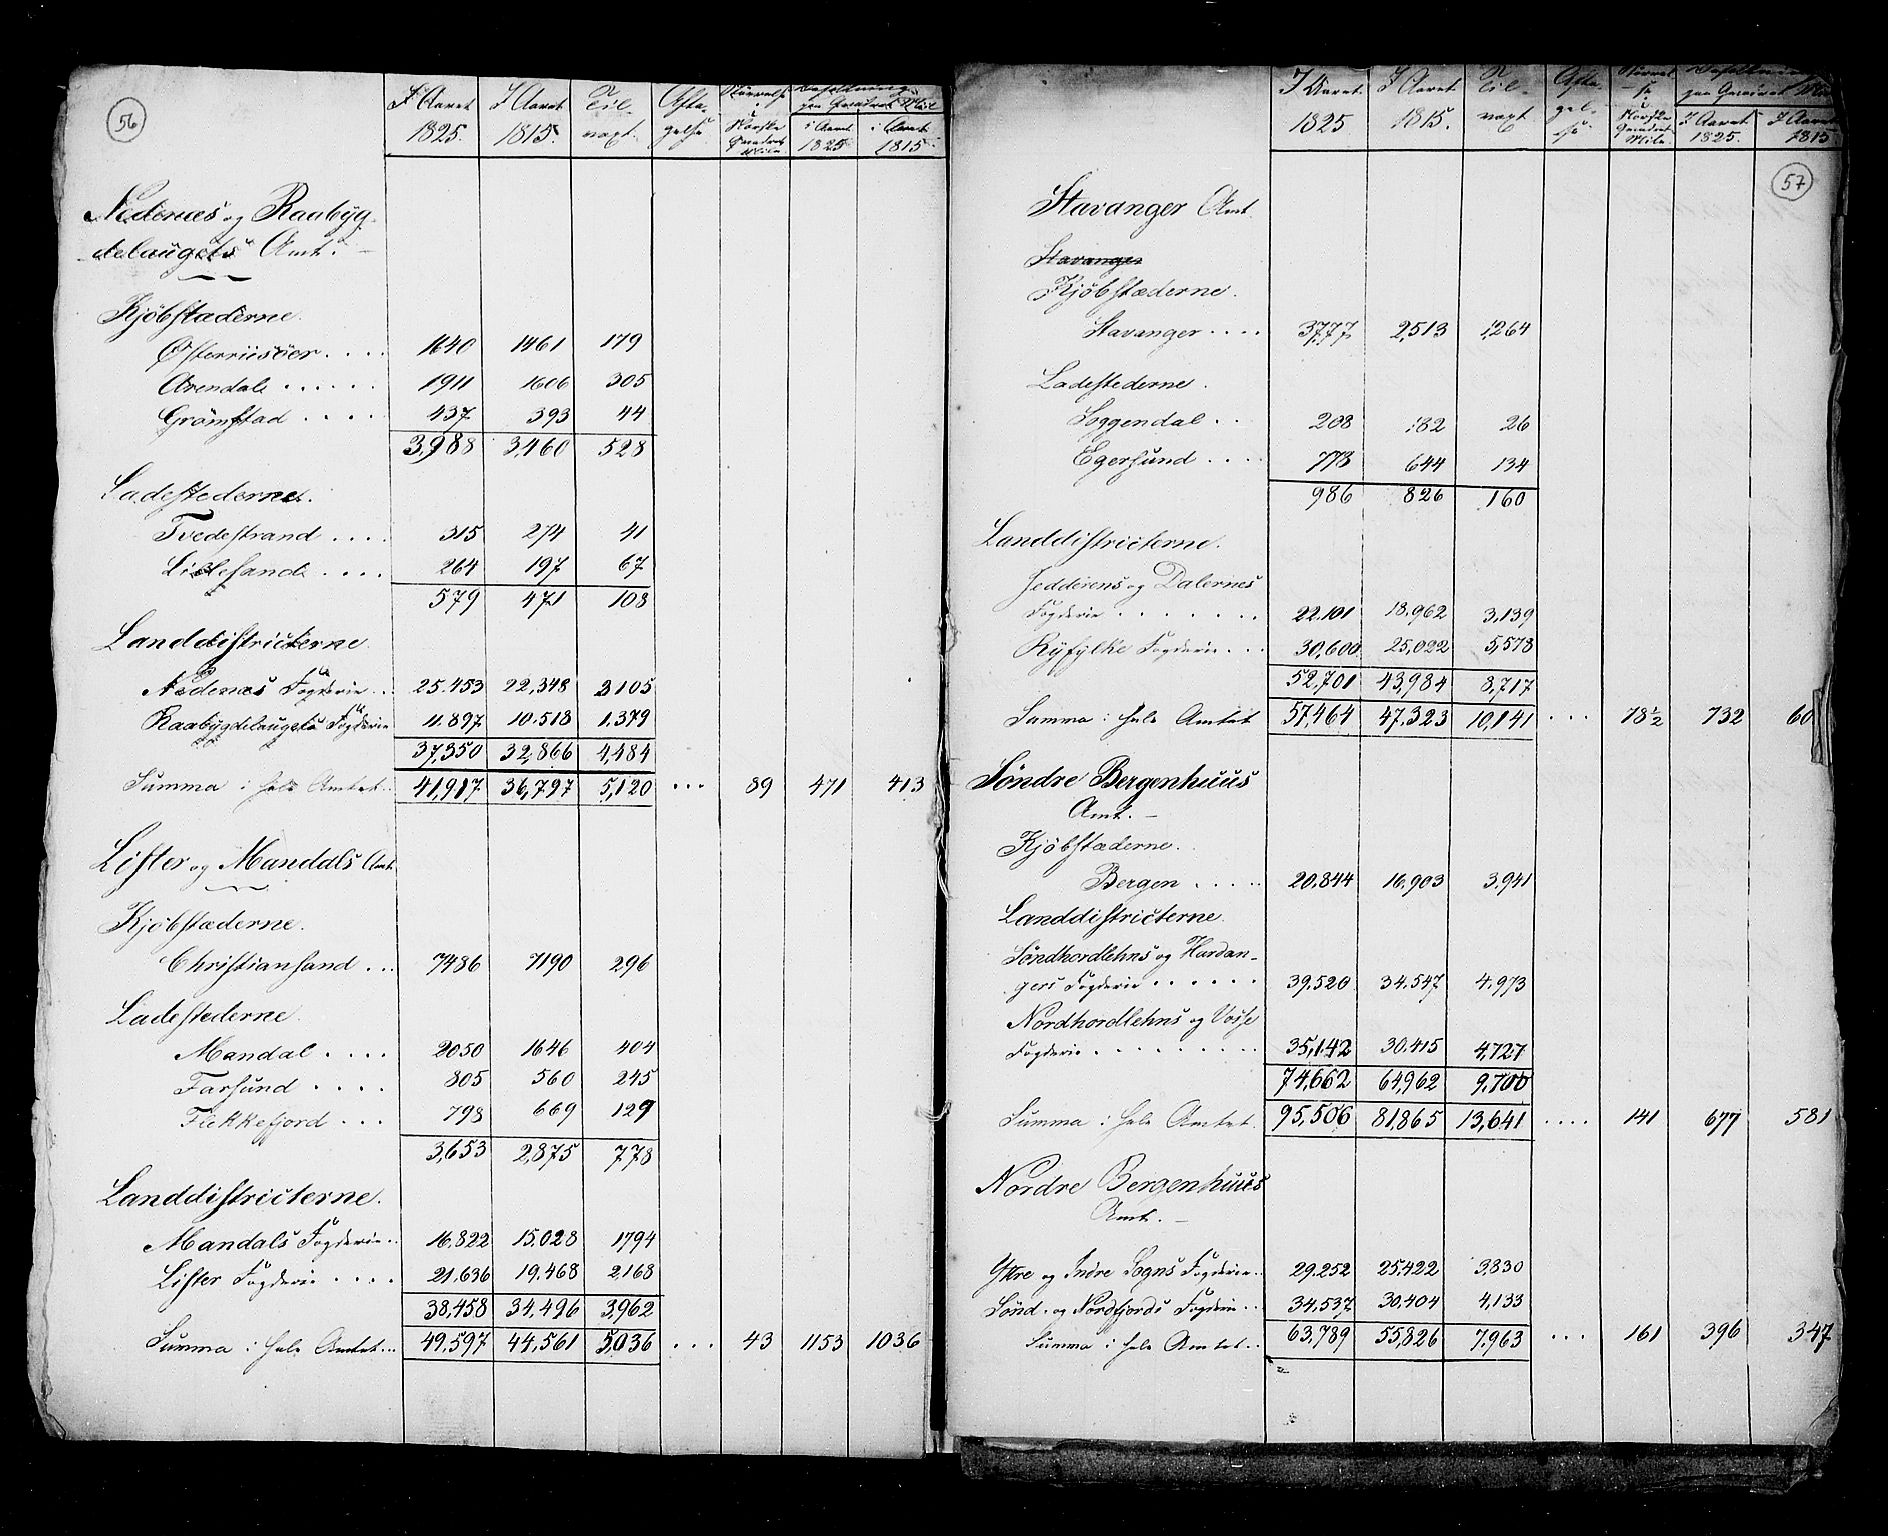 56
I Aaret 1825. I Aaret 1815. Tilvæxt. Aftagelse Størrelse i Norske Qvadrat Mile Befolkning paa Qvadrat Miil i Aaret 1825 i Aaret 1815.
Nedenæs og Raabÿg-
delaugets Amt. —
Kjöbstæderne.
Østerriisöer . . . . 1640 1461 179
Arendal . . . . . . 1911 1606 305
Grömstad . . . . 437 393 44
3,988 3,460 528
Ladestederne.
Tvedestrand . . . . 315 274 41
Lillesand . . . . 264 197 67
579 471 108
Landdistricterne.
Nedenæs Fogderie . . 25.453 22,348 3105
Raabÿgdelaugets Fogderie 11.897 10.518 1.379
37,350 32,866 4,484
Summa i hele Amtet . . 41,917 36,797 5,120 . . . 89 471 413
Lister og Mandals Amt.
Kjöbstæderne.
Christiansand . . . 7486 7190 296
Ladestederne.
Mandal . . . . 2050 1646 404
Farsund . . . . 805 560 245
Flekkefjord . . . 798 669 129
3,653 2,875 778
Landdistricterne.
Mandals Fogderie . . 16.822 15.028 1794
Lister Fogderie . . . . 21.636 19.468 2168
38,458 34,496 3,962
Summa i hele Amtet . . . 49,597 44,561 5,036 . . . 43 1153 1036
I Aaret 1825 I Aaret 1815. Tilvæxt Aftagelse Størrelse i Norske Qvadrat Mile. Befolkning paa Qvadrat Miil I Aaret 1825. I Aaret 1815.
57
Stavanger Amt.
Stavanger
Kjöbstæderne.
Stavanger . . . . 3,777 2,513 1,264
Ladestederne.
Soggendal . . 208 182 26
Egersund . . . . 778 644 134
986 826 160
Landdistricterne.
Jedderens og Dalernes
Fogderie . . . . . . . 22.101 18.962 3,139
Rÿfÿlke Fogderie . . . 30,600 25,022 5,578
52,701 43,984 8,717
Summa i hele Amtet 57,464 47,323 10,141 . . . 78½ 732 60
Söndre Bergenhuus
Amt. —
Kjöbstæderne.
Bergen . . . . . 20.844 16.903 3.941
Landdistricterne.
Söndhordlehns og Hardan-
gers Fogderie . . . . . . 39.520 34.547 4.973
Nordhordlehns og Vosse
Fogderie . . . . . . . . . 35,142 30.415 4,727
74,662 64,962 9,700
Summa i hele Amtet. 95,506 81,865 13,641 . . . . 141 677 581
Nordre Bergenhuus
Amt. —
Ytre og Indre Sogns Fogderie . . 29.252 25.422 3.830
Sönd- og Nordfjords Fogderie . . 34.537 30.404 4,133
Summa i hele Amtet . . 63,789 55,826 7.963 . . . 161 396 347